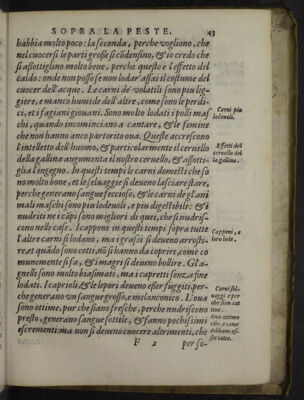 SOPRA LA PESTE. 43
habbia molto poco: la seconda, perche vogliono, che
nel cuocersi le parti grosse si cōdensino, & io credo che
si assottiglino molto bene, perche questo è l'effetto del
caldo: onde non posso se non lodar' assai il costume del
cuocer dell'acque. Le carni de' volatili sono piu leg-
giere, e manco humide dell'altre, come sono le perdi-
ci, et i fagiani giouani. Sono molto lodati i polli mas
chi, quando incominciano a cantare, & le femine
che non hanno anco partorito oua. Queste accrescono
l'intelletto dell'huomo, & particolarmente il ceruello
della gallina augumenta il nostro ceruello, & assotti-
glia l'ingegno. In questi tempi le carni domesti che so
no molto bone, et le seluaggie si deueno lasciare stare,
perche generano sangue feccioso, & le carni de gl'ani
mali maschi sono piu lodeuoli, e piu digestibili: & i
nudriti ne i cāpi sono migliori di quei, che si nudris-
cono nelle case. I capponi in questi tempi sopra tutte
l'altre carni si lodano, ma i grassi si deueno arrosti-
re, et quādo sono cotti, nō si hanno da coprire, come co
munemente si fa, & i magri si deueno bollire. Gl'a-
gnelli sono molto biasimati, ma i capretti senza fine
lodati. I caprioli, & le lepori deueno esser fuggiti, per-
che generano vn sangue grosso, e melanconico. L'oua
sono ottime, pur che siano fresche, perche nudriscono
presto, generano sangue sottile, & fanno pochissimi
escrementi: ma non si deueno cuocere altrimenti, che
F 2 per so-
Carni piu
lodeuoli.
Effetti del
ceruello del
la gallina.
Capponi, e
loro lode.
Carni sel-
uaggi e per
che siēn cat
tiue.
Oua ottime
che, e come
debbano es-
ser cotte.